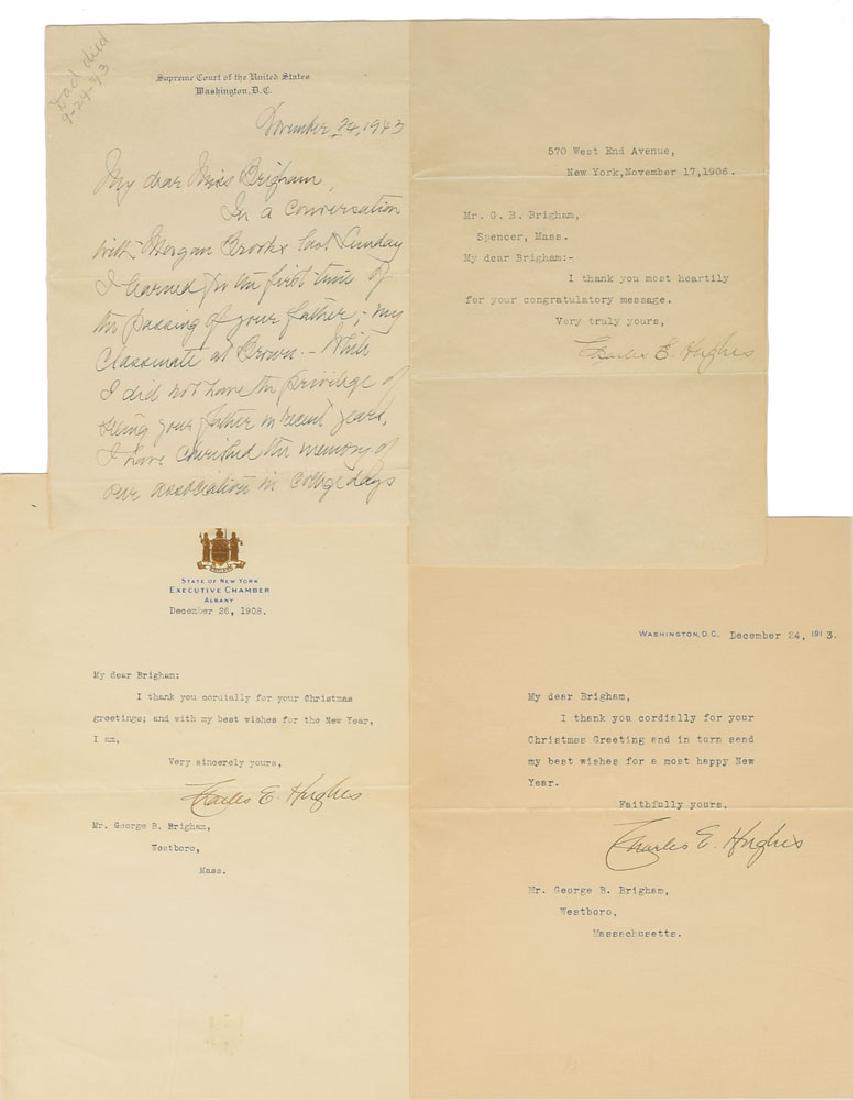 Dad died
9-24-43
Supreme Court of the United States
Washington, D.C.
November 24, 1943
My dear Miss Brigham,
In a conversation
with Morgan Brooks last Sunday
I learned for the first time of
the passing of your father, my
classmate at Brown. -- While
I did not have the privilege of
seeing your father in recent years,
I have cherished the memory of
our association in college days
570 West End Avenue,
New York, November 17, 1906.
Mr. G. B. Brigham,
Spencer, Mass.
My dear Brigham:-
I thank you most heartily
for your congratulatory message.
Very truly yours,
Charles E. Hughes
STATE OF NEW YORK
EXECUTIVE CHAMBER
ALBANY
December 26, 1908.
My dear Brigham:
I thank you cordially for your Christmas
greetings; and with my best wishes for the New Year,
I am,
Very sincerely yours,
Charles E. Hughes
Mr. George B. Brigham,
Westboro,
Mass.
WASHINGTON, D.C. December 24, 1913.
My dear Brigham,
I thank you cordially for your
Christmas Greeting and in turn send
my best wishes for a most happy New
Year.
Faithfully yours,
Charles E. Hughes
Mr. George B. Brigham,
Westboro,
Massachusetts.